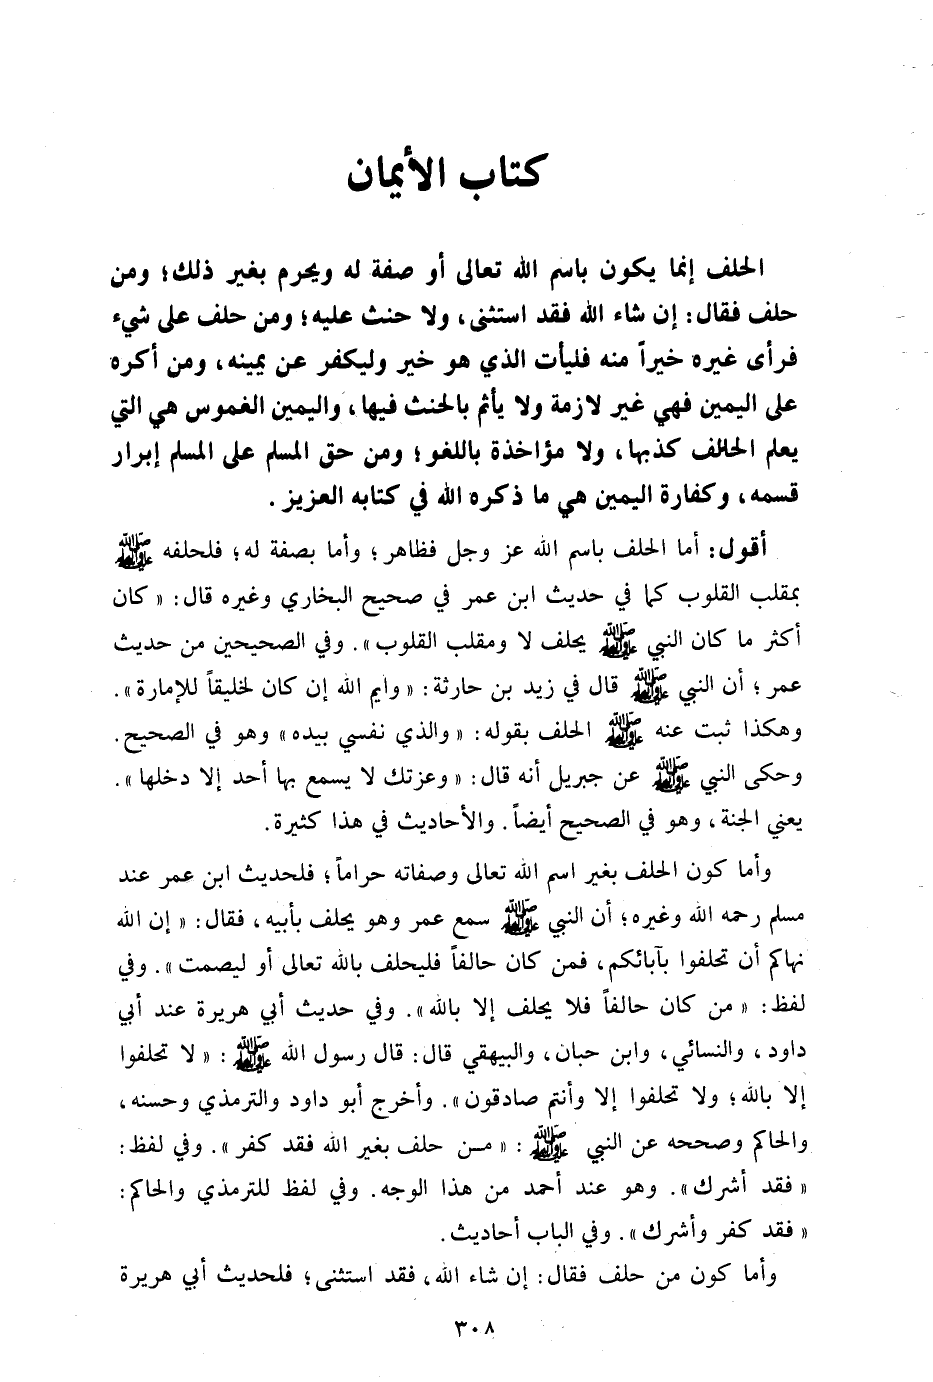 كتاب الأيمان
الحلف إنما يكون باسم الله تعالى أو صفة له ويحرم بغير ذلك؛ ومن
حلف فقال: إن شاء الله فقد استثنى، ولا حنث عليه؛ ومن حلف على شيء
فرأى غيره خيراً منه فليأت الذي هو خير وليكفر عن يمينه، ومن أكره
على اليمين فهي غير لازمة ولا يأثم بالحنث فيها، واليمين الغموس هي التي
يعلم الحالف كذبها، ولا مؤاخذة باللغو؛ ومن حق المسلم على المسلم إبرار
قسمه، وكفارة اليمين هي ما ذكره الله في كتابه العزيز.
أقول: أما الحلف باسم الله عز وجل فظاهر؛ وأما بصفة له؛ فلحلفه ﷺ
بمقلب القلوب كما في حديث ابن عمر في صحيح البخاري وغيره قال: «كان
أكثر ما كان النبي ﷺ يحلف لا ومقلب القلوب». وفي الصحيحين من حديث
عمر؛ أن النبي ﷺ قال في زيد بن حارثة: «وايم الله إن كان لخليقاً للإمارة».
وهكذا ثبت عنه ﷺ الحلف بقوله: «والذي نفسي بيده» وهو في الصحيح.
وحكى النبي ﷺ عن جبريل أنه قال: «وعزتك لا يسمع بها أحد إلا دخلها».
يعني الجنة، وهو في الصحيح أيضاً. والأحاديث في هذا كثيرة.
وأما كون الحلف بغير اسم الله تعالى وصفاته حراماً؛ فلحديث ابن عمر عند
مسلم رحمه الله وغيره؛ أن النبي ﷺ سمع عمر وهو يحلف بأبيه، فقال: «إن الله
نهاكم أن تحلفوا بآبائكم، فمن كان حالفاً فليحلف بالله تعالى أو ليصمت». وفي
لفظ: «من كان حالفاً فلا يحلف إلا بالله». وفي حديث أبي هريرة عند أبي
داود، والنسائي، وابن حبان، والبيهقي قال: قال رسول الله ﷺ: «لا تحلفوا
إلا بالله؛ ولا تحلفوا إلا وأنتم صادقون». وأخرج أبو داود والترمذي وحسنه،
والحاكم وصححه عن النبي ﷺ: «من حلف بغير الله فقد كفر». وفي لفظ:
«فقد أشرك». وهو عند أحمد من هذا الوجه. وفي لفظ للترمذي والحاكم:
«فقد كفر وأشرك». وفي الباب أحاديث.
وأما كون من حلف فقال: إن شاء الله، فقد استثنى؛ فلحديث أبي هريرة
٣٠٨